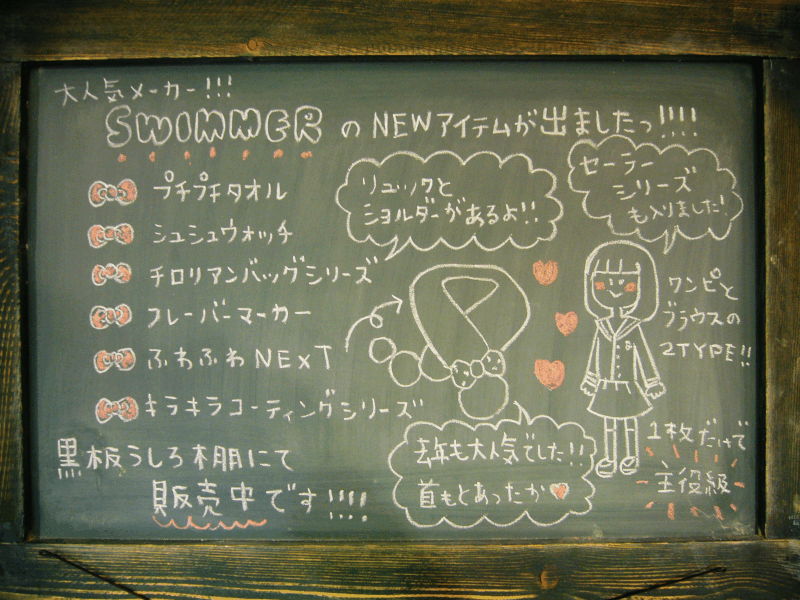 大人気メーカー!!!
SWIMMERのNEWアイテムが出ましたっ!!!!
プチプチタオル
シュシュウォッチ
チロリアンバッグシリーズ
フレーバーマーカー
ふわふわNExT
キラキラコーティングシリーズ
黒板うしろ棚にて
販売中です!!!!
リュックと
ショルダーがあるよ!!
セーラー
シリーズ
も入りました!
ワンピと
ブラウスの
2TYPE!!
1枚だけで
主役級
去年も大人気でした!!
首もとあったか